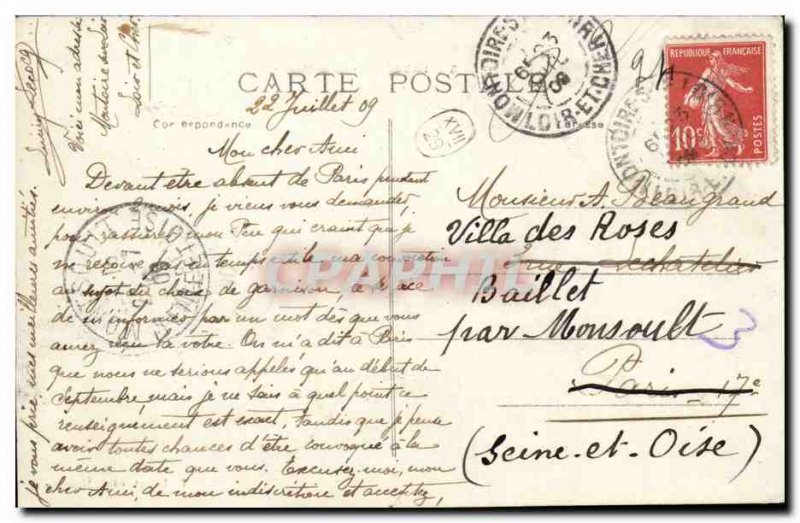 CARTE POSTALE
22 Juillet 09
Correspondance
XVIII
29
Mon cher Ami
Devant être absent de Paris pendant
environ jours je viens vous demander,
pour rassurer mon Père qui craint que je
ne reçoive pas à temps
au sujet du choix de garnison,
de m'informer par un mot dès que vous
aurez reçu la vôtre. On m'a dit à Paris
que nous ne serions appelés qu'au début de
Septembre, mais je ne sais à quel point ce
renseignement est exact, tandis que je pense
avoir toutes chances d'être convoqué à la
même date que vous. Excusez-moi, mon
cher Ami, de mon indiscrétion et acceptez,
je vous prie mes meilleures amitiés.
Voici mon adresse
Montoire sur Loir
Loir et Cher
REPUBLIQUE FRANÇAISE
10c
POSTES
MONTOIRE-S-
LOIR-ET-CHER
Monsieur A. Beaugrand
Villa des Roses
Lechatelier
Baillet
par Monsoult
Paris 17e
(Seine-et-Oise)
CPAPHIL